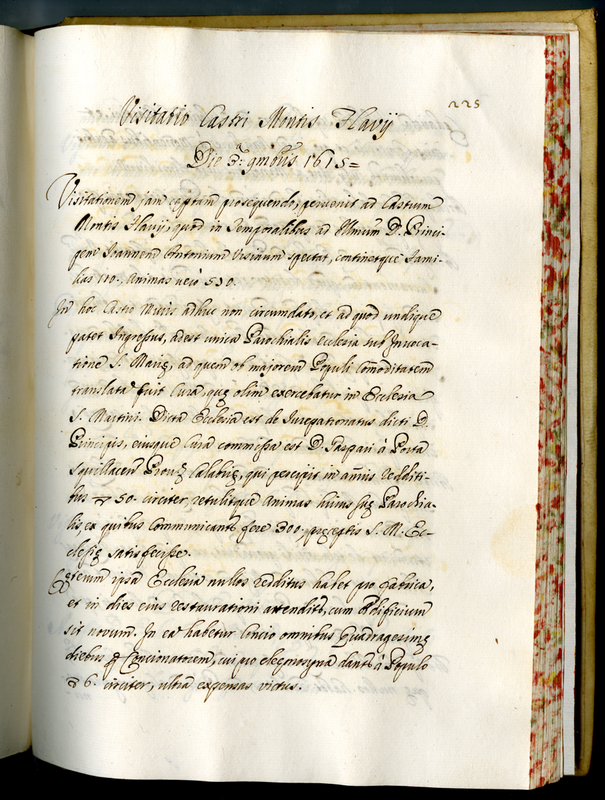 225
Visitatio Castri Montis Flavij
Die 3.ª 9mbris 1615=
Visitationem jam coeptam prosequendo, pervenit ad Castrum
Montis Flavij, quod in Temporalibus ad Illmum D. Princi-
pem Joannem Antonium Ursinum spectat, continetque Fami-
lias 110., Animas verò 530.
In hoc Castro Muris adhuc non circumdato, et ad quod undique
patet Ingressus, adest unica Parochialis Ecclesia sub Invoca-
tione S. Mariȩ, ad quem ob majorem Populi comoditatem
translata fuit Cura, quȩ olim exercebatur in Ecclesia
S. Martini. Dicta Ecclesia est de Jurepatronatus dicti D.
Principis, eiusque Cura commissa est D. Gaspari à Porta
Squillacen Prouȩ Calabriȩ, qui percipit in annis redditi-
bus 50. circiter, retulitque Animas huius suȩ Parochia-
lis, ex quibus Communicantes fere 300. prȩceptis S. M. Ec-
clesiȩ satisfecisse.
Cȩterum ipsa Ecclesia nullos redditus habet pro fabrica,
et in dies eius restaurationi attendit, cum Aedificium
sit novum. In ea habetur Concio omnibus Quadragesimȩ
diebus p Concionatorem, cui pro eleemosyna dant à Populo
6. circiter, ultra expensas victus.